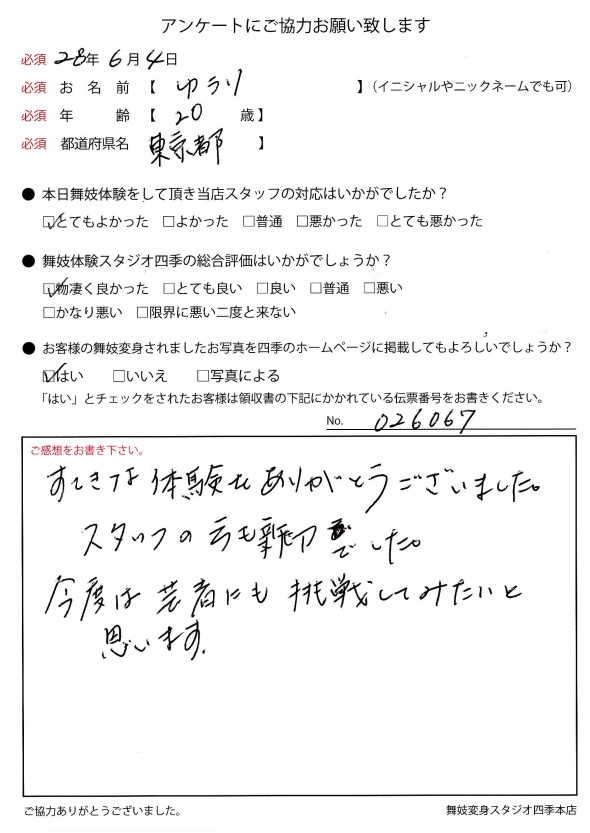 アンケートにご協力お願い致します
必須 28年 6月 4日
必須 お名前【 ゆうり 】（イニシャルやニックネームでも可）
必須 年齢【 20 歳】
必須 都道府県名 東京都 】
● 本日舞妓体験をして頂き当店スタッフの対応はいかがでしたか？
☑とてもよかった □よかった □普通 □悪かった □とても悪かった
● 舞妓体験スタジオ四季の総合評価はいかがでしょうか？
☑物凄く良かった □とても良い □良い □普通 □悪い
□かなり悪い □限界に悪い二度と来ない
● お客様の舞妓変身されましたお写真を四季のホームページに掲載してもよろしいでしょうか？
☑はい □いいえ □写真による
「はい」とチェックをされたお客様は領収書の下記にかかれている伝票番号をお書きください。
No. 026067
ご感想をお書き下さい。
すてきな体験をありがとうございました。
スタッフの方も親切でした。
今度は芸者にも挑戦してみたいと
思います。
ご協力ありがとうございました。 舞妓変身スタジオ四季本店